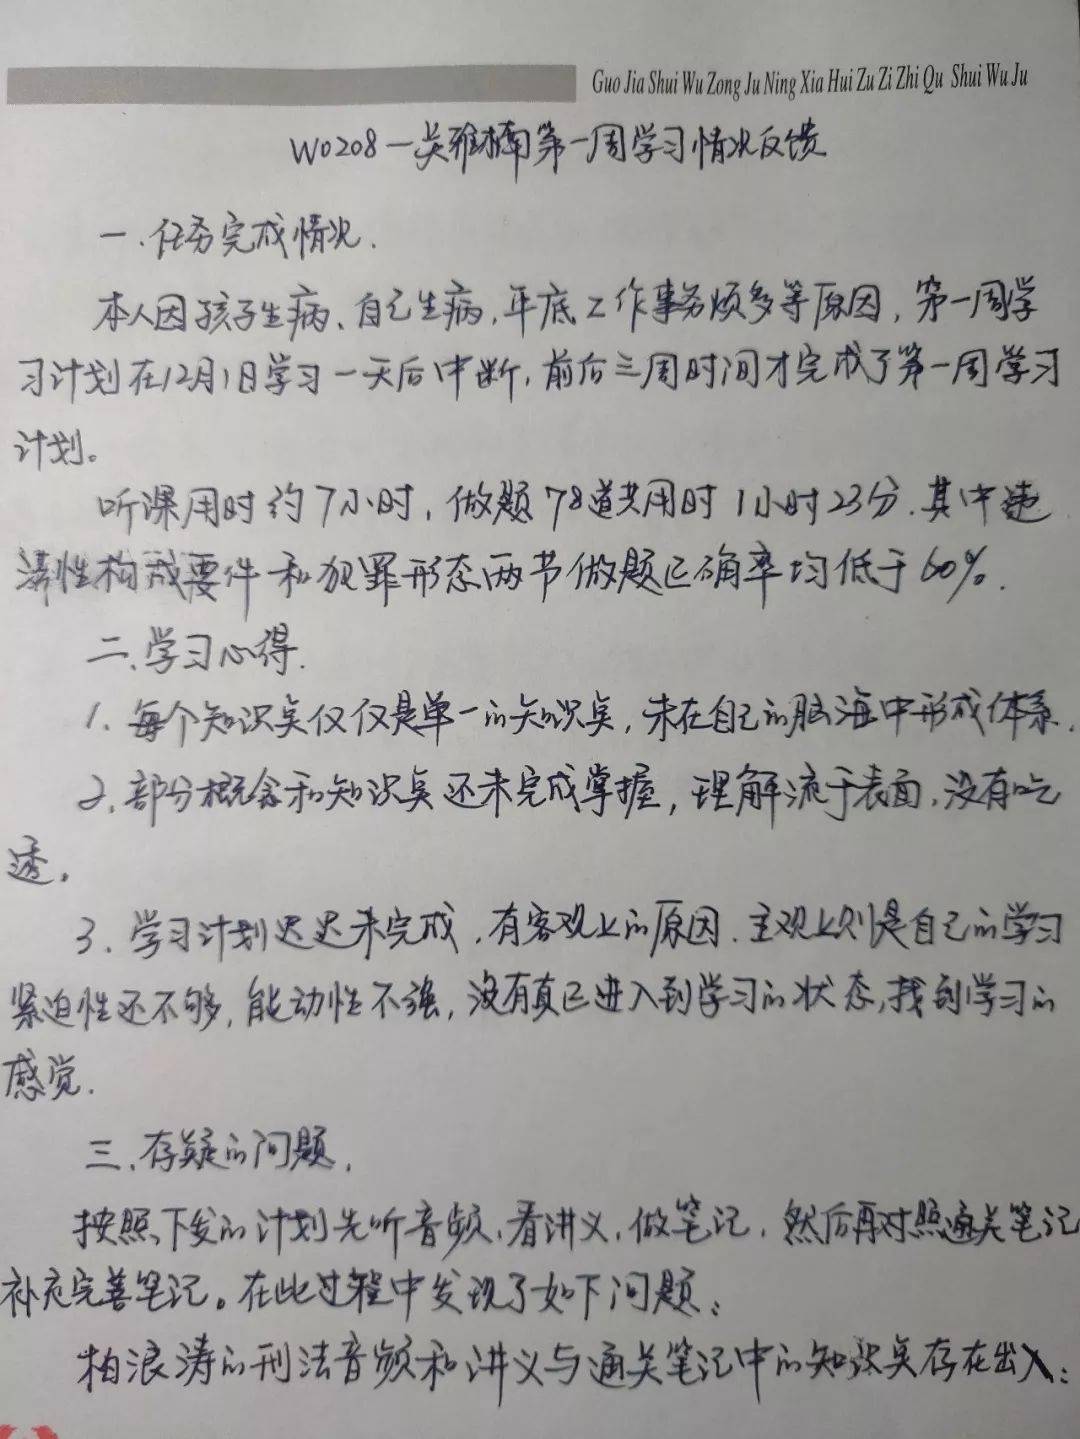 Guo Jia Shui Wu Zong Ju Ning Xia Hui Zu Zi Zhi Qu Shui Wu Ju
W0208一吴雅楠第一周学习情况反馈
一、任务完成情况.
本人因孩子生病、自己生病,年底工作事务烦多等原因,第一周学
习计划在12月1日学习一天后中断,前后三周时间才完成了第一周学习
计划。
听课用时约7小时,做题78道共用时1小时23分.其中违
法性构成要件和犯罪形态两节做题正确率均低于60%.
二、学习心得.
1、每个知识点仅仅是单一的知识点,未在自己的脑海中形成体系.
2、部分概念和知识点还未完成掌握,理解流于表面,没有吃
透。
3、学习计划迟迟未完成,有客观上的原因.主观上则是自己的学习
紧迫性还不够,能动性不强,没有真正进入到学习的状态,找到学习的
感觉.
三、存疑的问题.
按照下发的计划先听音频,看讲义,做笔记,然后再对照通关笔记
补充完善笔记。在此过程中发现了如下问题:
柏浪涛的刑法音频和讲义与通关笔记中的知识点存在出入: